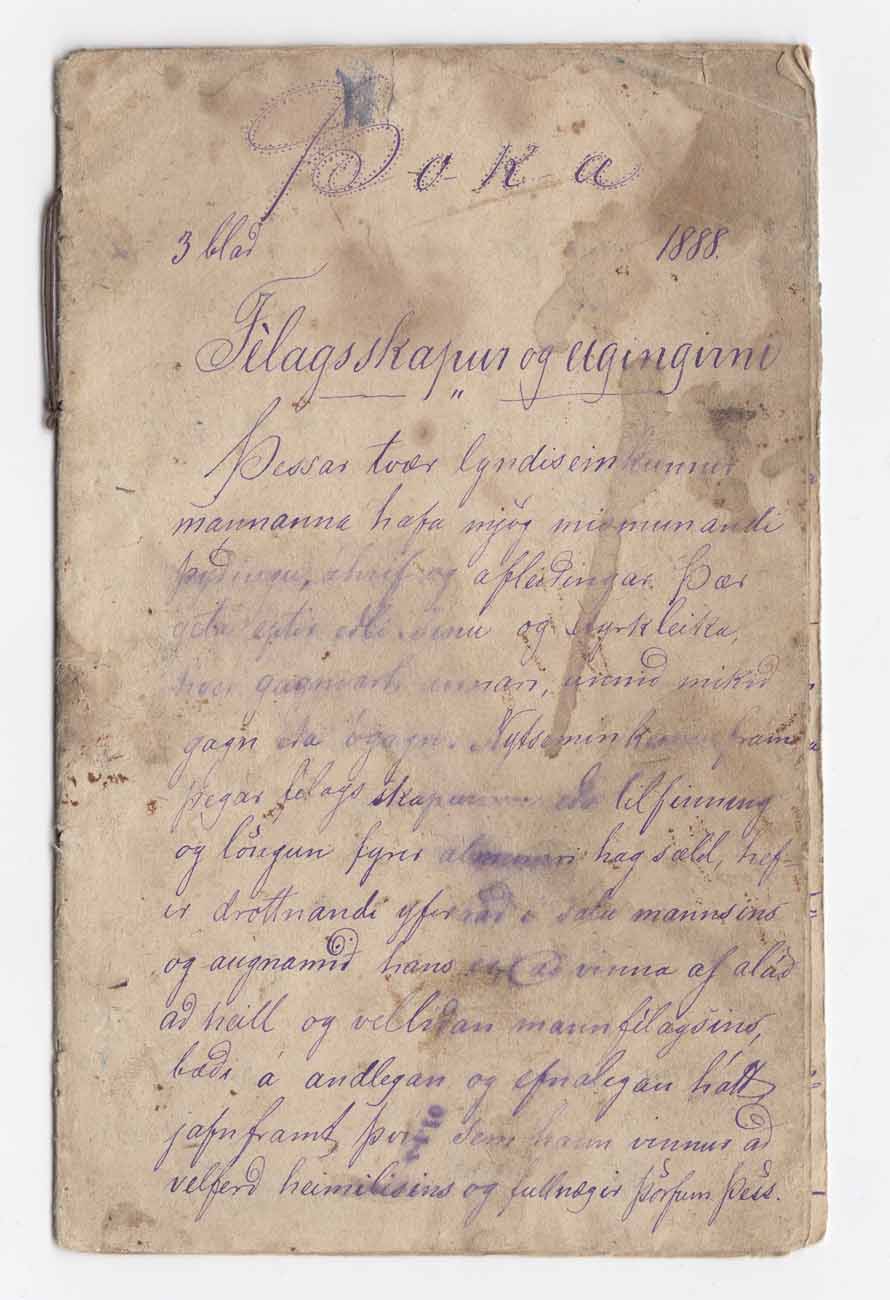 Þoka
3 blað 1888.
Félagsskapur og eigingirni
"
Þessar tvær lyndiseinkunnir
mannanna hafa mjög mismunandi
þýðingu, áhrif og afleiðingar. Þær
geta eptir eðli sínu og styrkleika,
hver gagnvart annari, unnið mikið
gagn eða ógagn. Nytsemin kemur fram
þegar félagsskapurinn eða tilfinning
og löngun fyrir almennri hagsæld, hef-
ir drottnandi yfirráð í sálu mannsins
og augnamið hans er að vinna af alúð
að heill og vellíðan mannfélagsins,
bæði á andlegan og efnalegan hátt
jafnframt því sem hann vinnur að
velferð heimilisins og fullnægir þörfum þess.